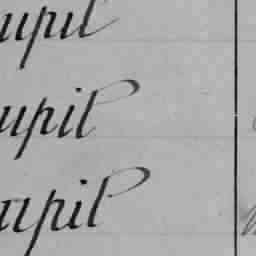 upil
upil
apil